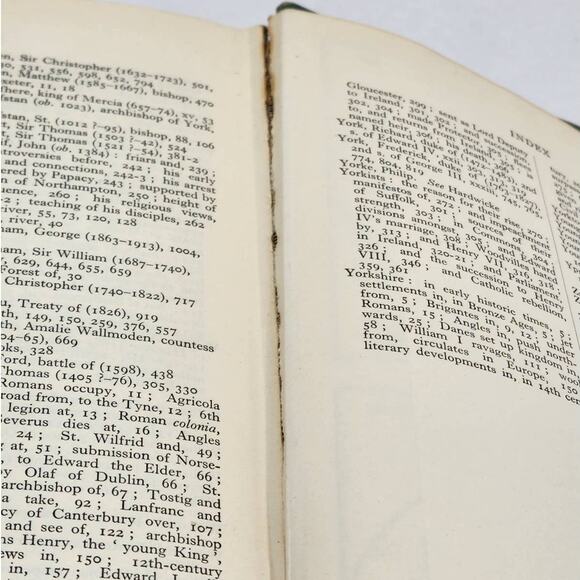 en, Sir Christopher (1632–1723), 501,
30, 531, 556, 598, 652, 794
n, Matthew (1585–1667), bishop, 470
xeter, 11, 18
here, king of Mercia (657–74), xv, 53
stan (ob. 1023), archbishop of York,
stan, St. (1012 ?–95), bishop, 88, 106
t, Sir Thomas (1503 ?–42), 524
Sir Thomas (1521 ?–54), 381-2
if, John (ob. 1384) : friars and, 239 ;
ntroversies before, 242 ; his early
and connections, 242-3 ; his arrest
ered by Papacy, 243 ; supported by
n of Northampton, 250 ; height of
uence, 260 ; his religious views,
-2 ; teaching of his disciples, 262
river, 55, 73, 120, 128
, river, 40
ham, George (1863–1913), 1004,
ham, Sir William (1687–1740),
, 629, 644, 655, 659
Forest of, 30
Christopher (1740–1822), 717
u, Treaty of (1826), 919
th, 149, 150, 259, 376, 557
th, Amalie Wallmoden, countess
04–65), 669
oks, 328
Ford, battle of (1598), 438
Thomas (1405 ?–76), 305, 330
Romans occupy, 11 ; Agricola
road from, to the Tyne, 12 ; 6th
legion at, 13 ; Roman colonia,
Severus dies at, 16 ; Angles
24 ; St. Wilfrid and, 49 ;
g at, 51 ; submission of Norse-
, to Edward the Elder, 66 ;
by Olaf of Dublin, 66 ; St.
archbishop of, 67 ; Tostig and
a take, 92 ; Lanfranc and
cy of Canterbury over, 107 ;
and see of, 122 ; archbishop
ns Henry, the ' young King ',
ews in, 150 ; 12th-century
in, 157 ; Edward I
INDEX
Gloucester, 299 ; sent as Lord Deputy
to Ireland,
302, 304 ; made Protector,
named heir, 307 ; his death,
York, Richard, duke of (1473–83),
s. of Edward IV,
York, Frederick, duke of (1763–1827),
s. of George III, xxxii, 745, 765,
774, 804, 819
Yorke, Philip. See Hardwicke
Yorkists : the cognomen, 271 ;
manifestos of, 272 ; and impeachment
of Suffolk, 301 ; their rise, 270
strength, 303 ; in Commons,
divisions amongst,
IV's marriage, 308 ; Woodvilles hated
by, 313 ; and Henry VII, 316, 318,
in Ireland, 320-21 ; and
326 ; and successors of Edward
VIII, 346 ; and Catholic rebellion,
359, 361
Yorkshire : in early historic times, 5 ;
settlements in, in Bronze Age,
from, 5 ; Brigantes in, 9, 12 ; jet
Romans, 15 ; Angles in,
wards, 25 ; Danes set up kingdom in,
58 ; William I ravages, 111 ; wool
from, circulates in Europe, 100
literary developments in, in 14th cen